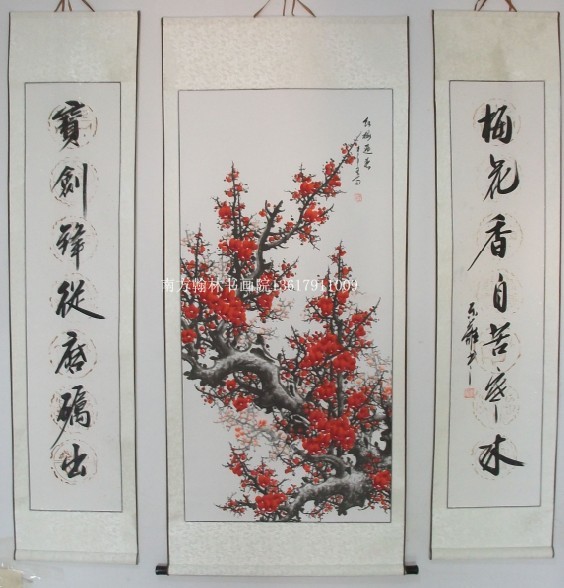 寶劍鋒從磨礪出
红梅迎春
南方翰林书画院13617911009
梅花香自苦寒来